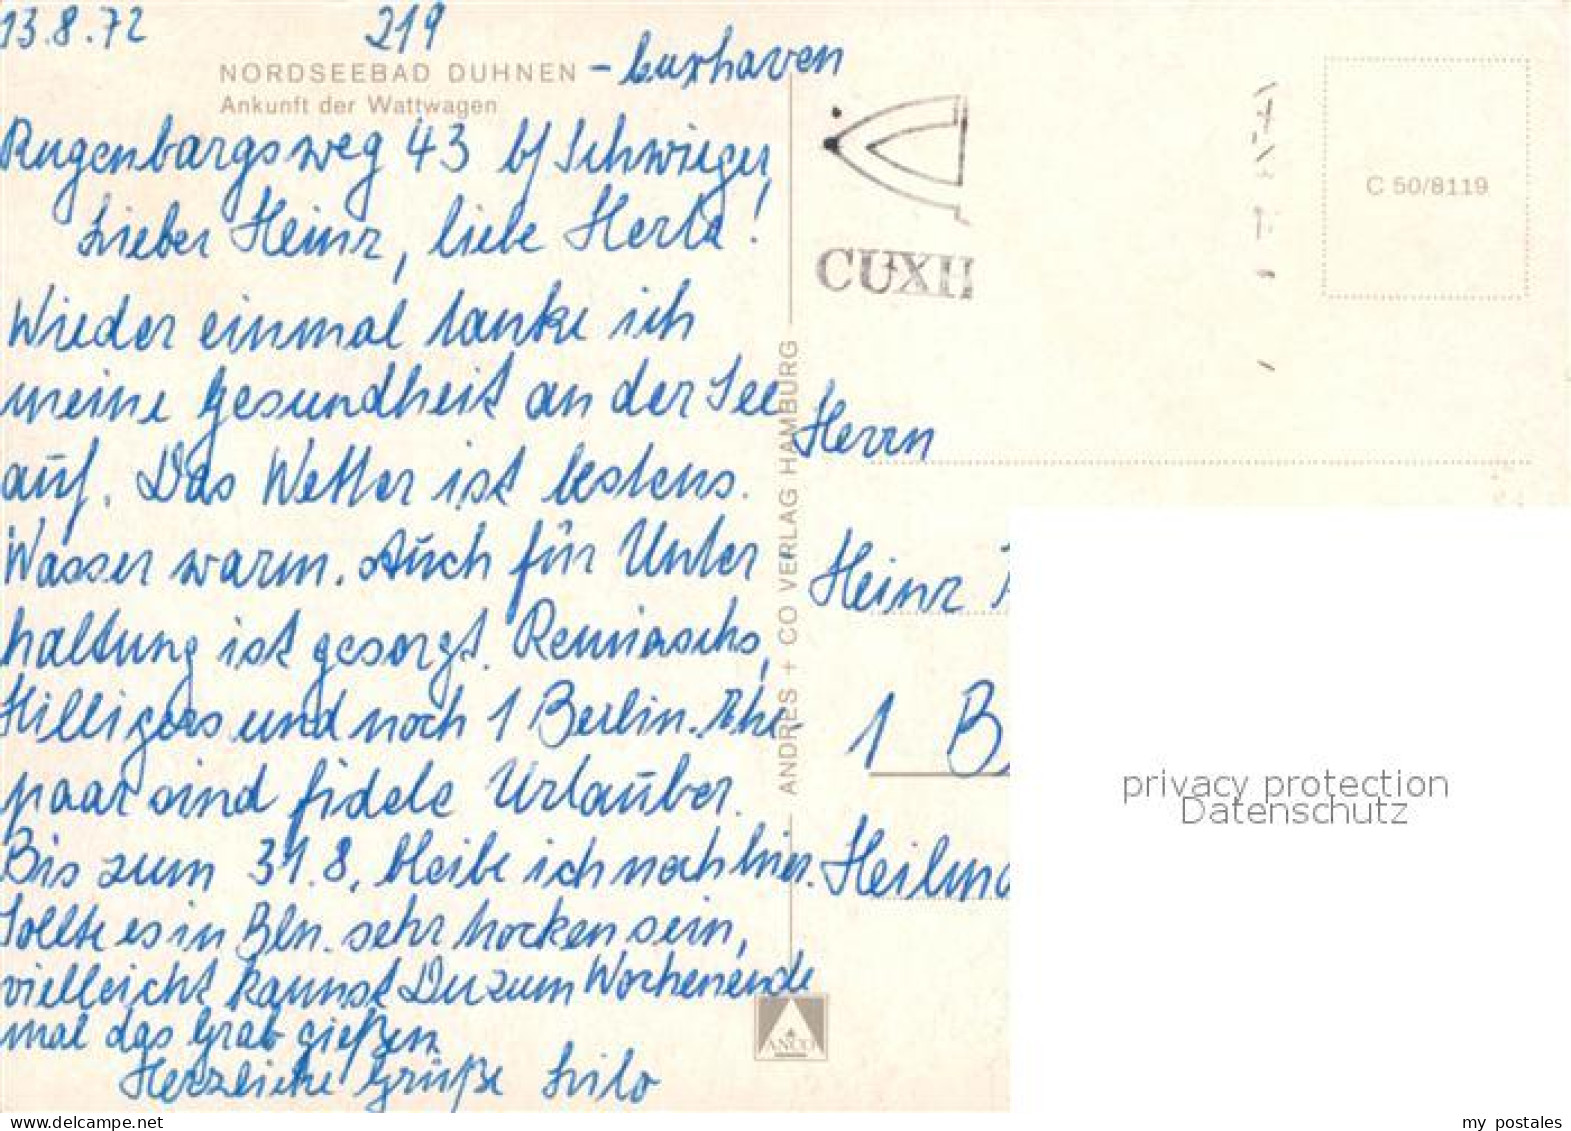 13.8.72 219
NORDSEEBAD DUHNEN - Cuxhaven
Ankunft der Wattwagen
Rugenbargsweg 43 b/ Schwieger
Lieber Heinz, liebe Herta!
Wieder einmal tanke ich
meine Gesundheit an der See
auf. Das Wetter ist bestens.
Wasser warm. Auch für Unter
haltung ist gesorgt.
und noch 1 Berlin. Ehe-
paar sind fidele Urlauber.
Bis zum 31.8. bleibe ich noch hier.
Sollte es in Bln. sehr trocken sein,
vielleicht kannst Du zum Wochenende
mal das Grab gießen.
Herzliche Grüße Lilo
ANDRES + CO VERLAG HAMBURG
ANCO
CUXH
C 50/8119
Herrn
Heinz
1 B
Heilm
privacy protection
Datenschutz
www.delcampe.net
my_postales